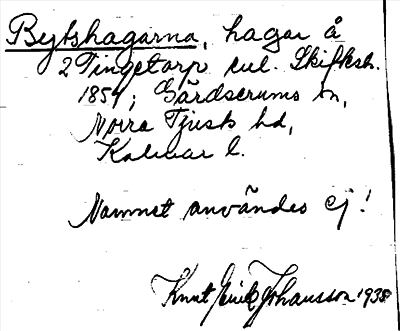 Bytshagarna, hagar å
2 Tingetorp enl. Skifksh.
1857; Gärdserums sn,
Norra Tjusts hd,
Kalmar l.
Namnet användes ej!
Knut Erik Johansson 1938